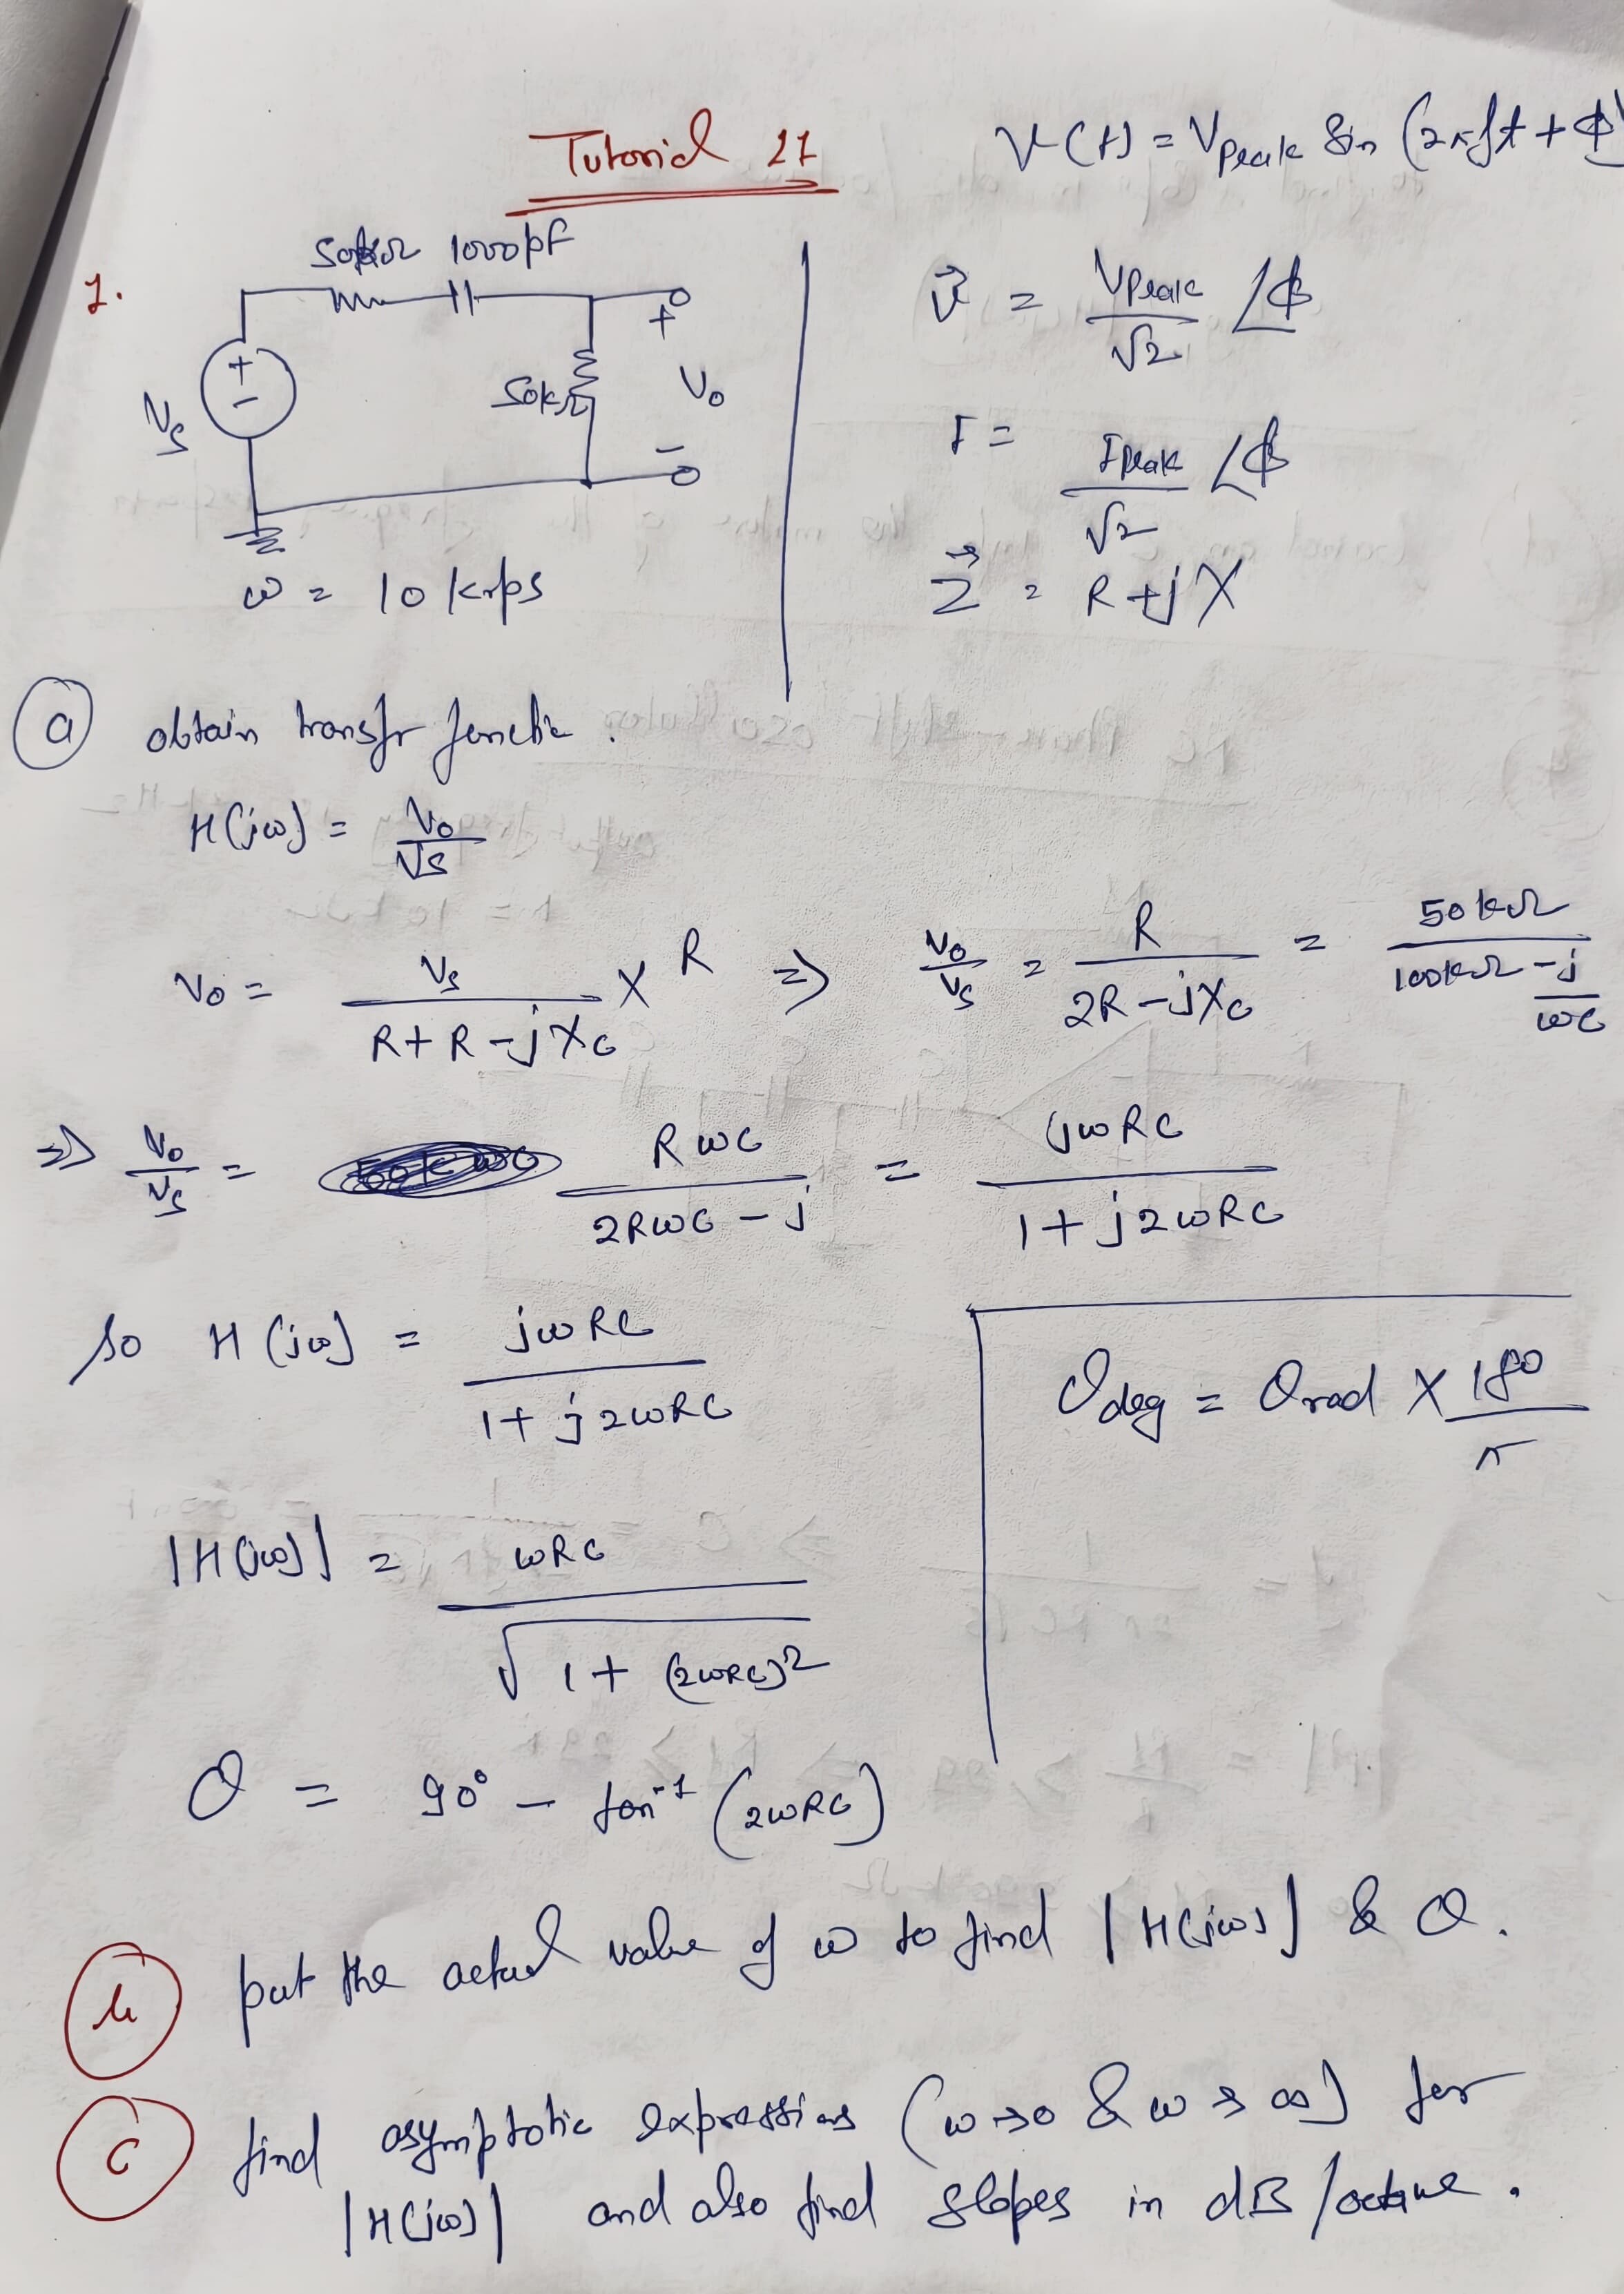 Tutorial 11
V(t) = Vpeak Sin (2πft + ϕ)
1.
50kΩ 1000pF
Vs
+
-
50kΩ
+
Vo
-
ω = 10 krps
V⃗ = Vpeak/√2 ∠ϕ
I = Ipeak/√2 ∠ϕ
Z⃗ = R + jX
(a) obtain transfr functin.
H(jω) = Vo/Vs
Vo = Vs/(R + R - jXc) × R ⇒ Vo/Vs = R/(2R - jXc) = 50kΩ/(100kΩ - j/(ωC))
⇒ Vo/Vs = RωC/(2RωC - j) = jωRC/(1 + j2ωRC)
so H(jω) = jωRC/(1 + j2ωRC)
θdeg = θrad × 180/π
|H(jω)| = ωRC/√(1 + (2ωRC)²)
θ = 90° - tan⁻¹ (2ωRC)
(b) put the actual value of ω to find |H(jω)| & θ.
(c) find asymptotic expressions (ω→0 & ω→∞) for
|H(jω)| and also find slopes in dB/octave.